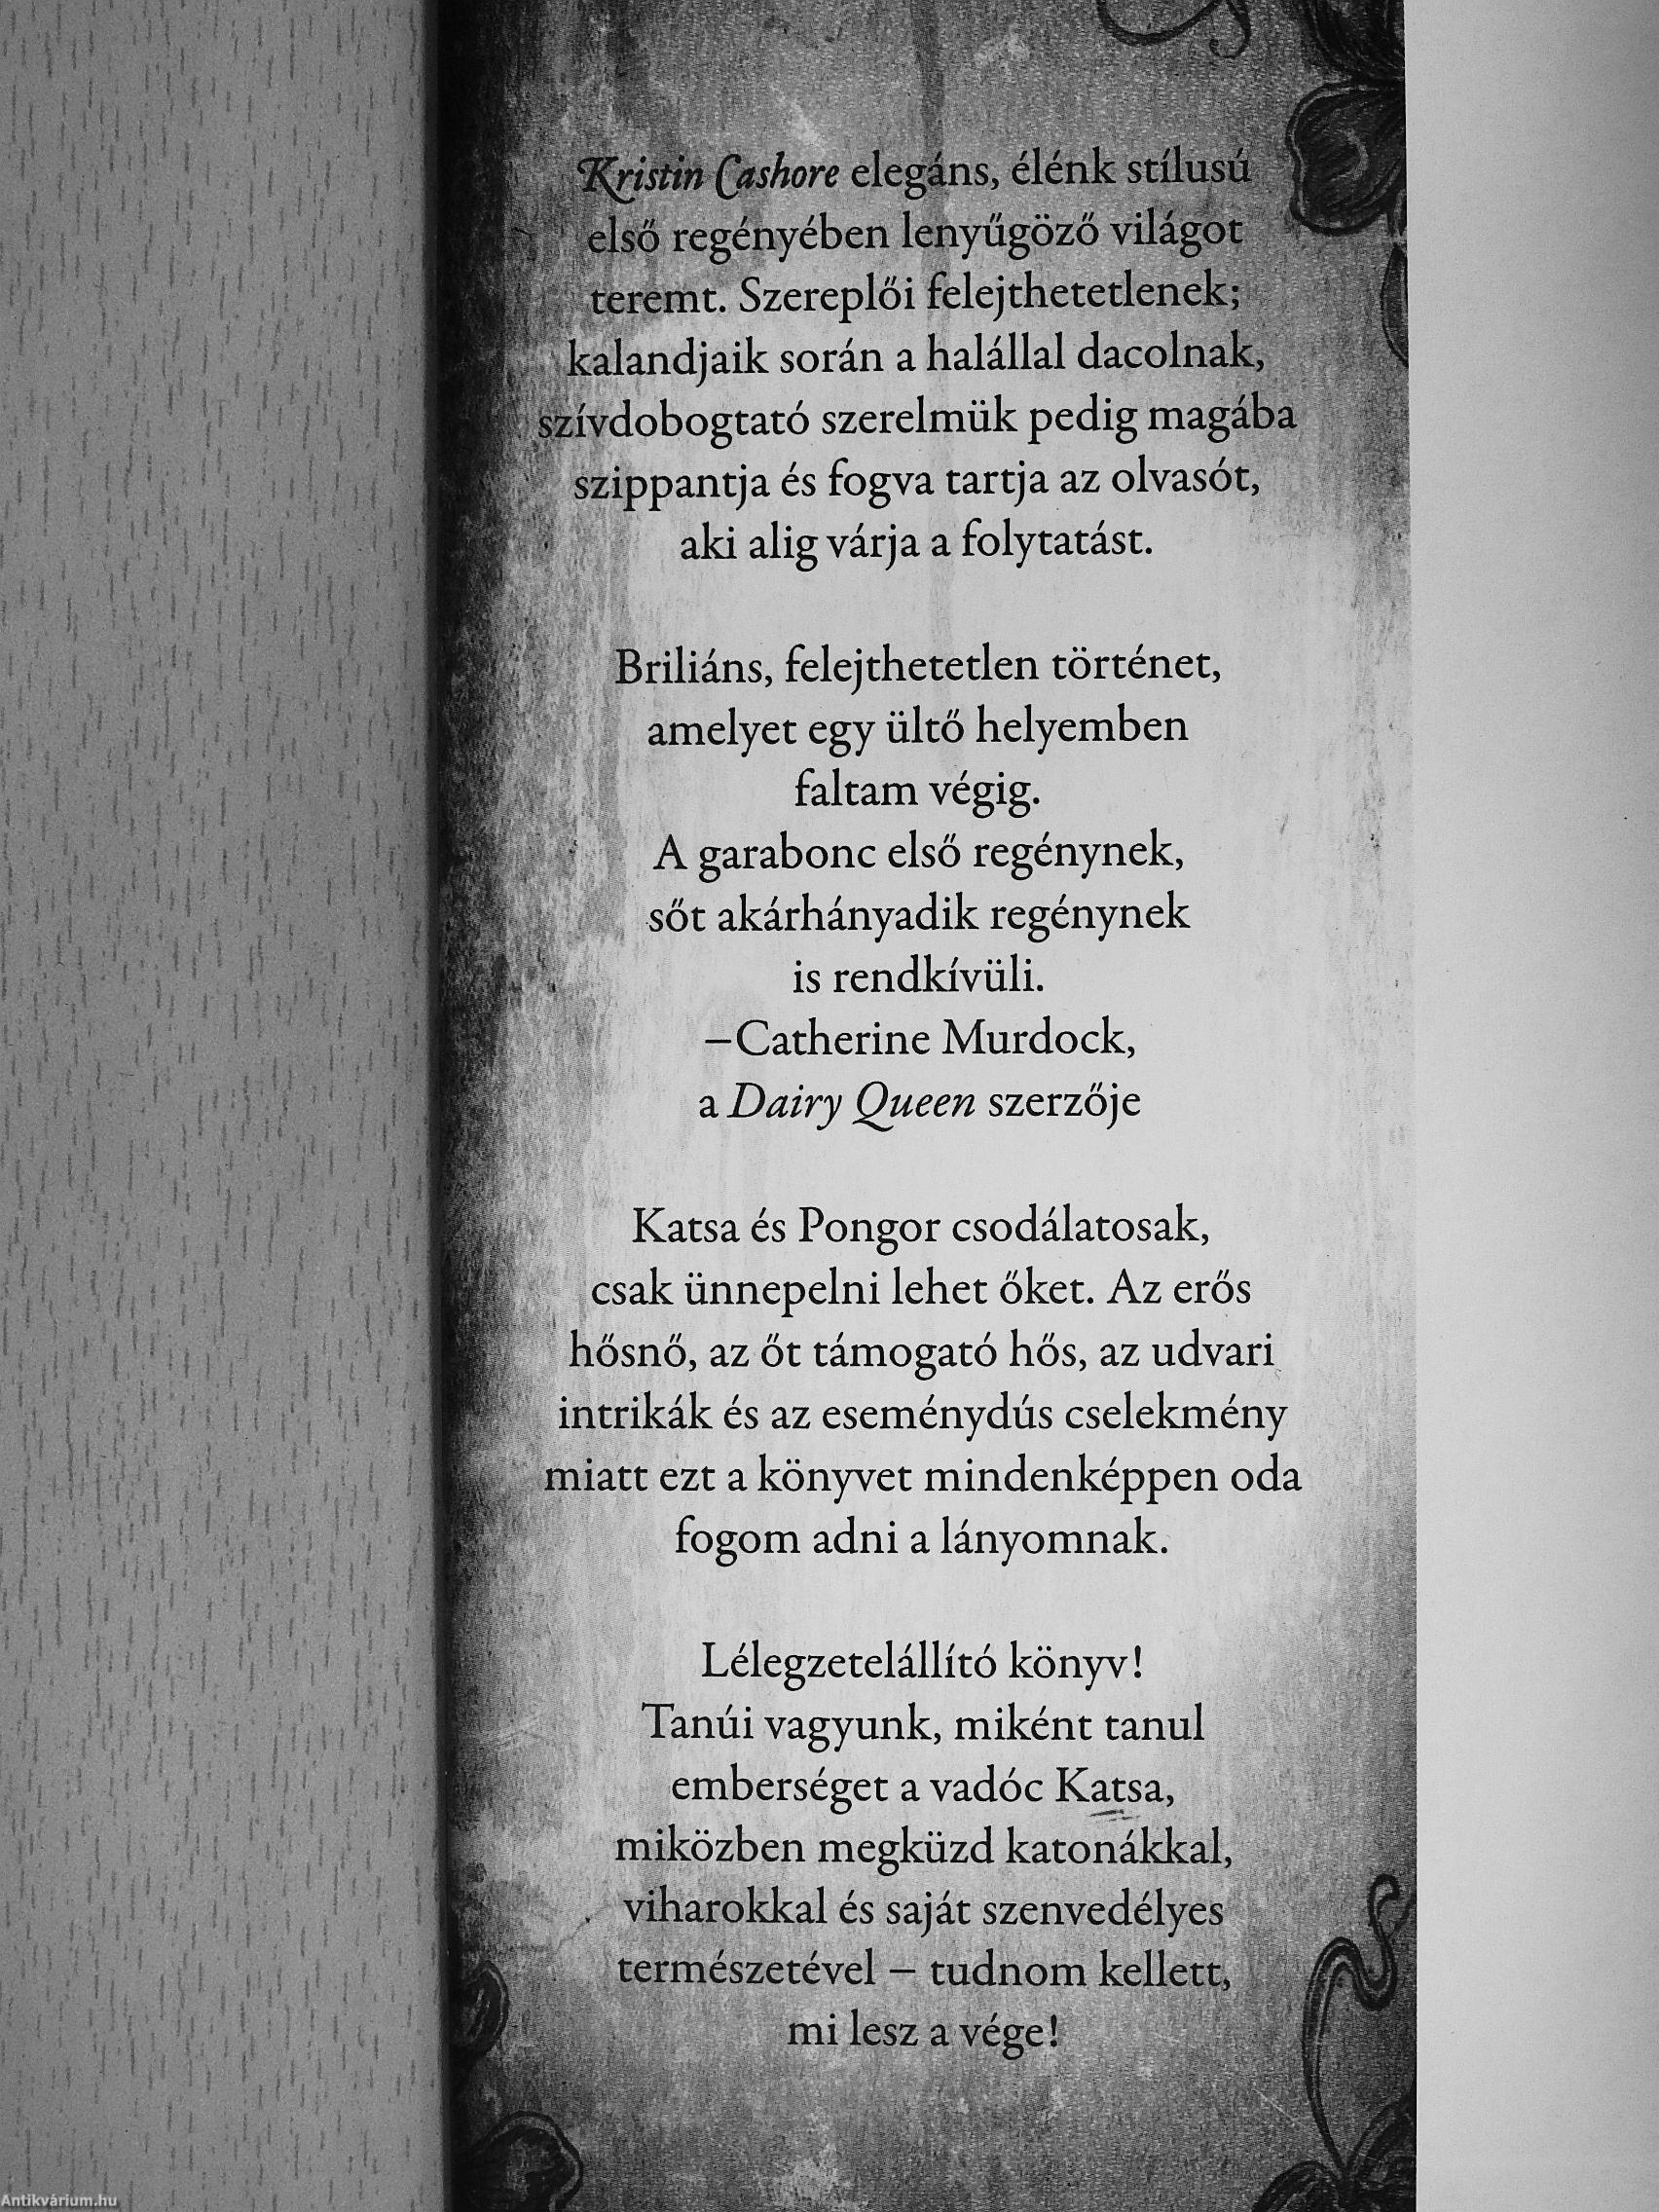 Kristin Cashore elegáns, élénk stílusú
első regényében lenyűgöző világot
teremt. Szereplői felejthetetlenek;
kalandjaik során a halállal dacolnak,
szívdobogtató szerelmük pedig magába
szippantja és fogva tartja az olvasót,
aki alig várja a folytatást.
Briliáns, felejthetetlen történet,
amelyet egy ültő helyemben
faltam végig.
A garabonc első regénynek,
sőt akárhányadik regénynek
is rendkívüli.
–Catherine Murdock,
a Dairy Queen szerzője
Katsa és Pongor csodálatosak,
csak ünnepelni lehet őket. Az erős
hősnő, az őt támogató hős, az udvari
intrikák és az eseménydús cselekmény
miatt ezt a könyvet mindenképpen oda
fogom adni a lányomnak.
Lélegzetelállító könyv!
Tanúi vagyunk, miként tanul
emberséget a vadóc Katsa,
miközben megküzd katonákkal,
viharokkal és saját szenvedélyes
természetével – tudnom kellett,
mi lesz a vége!
Antikvárium.hu